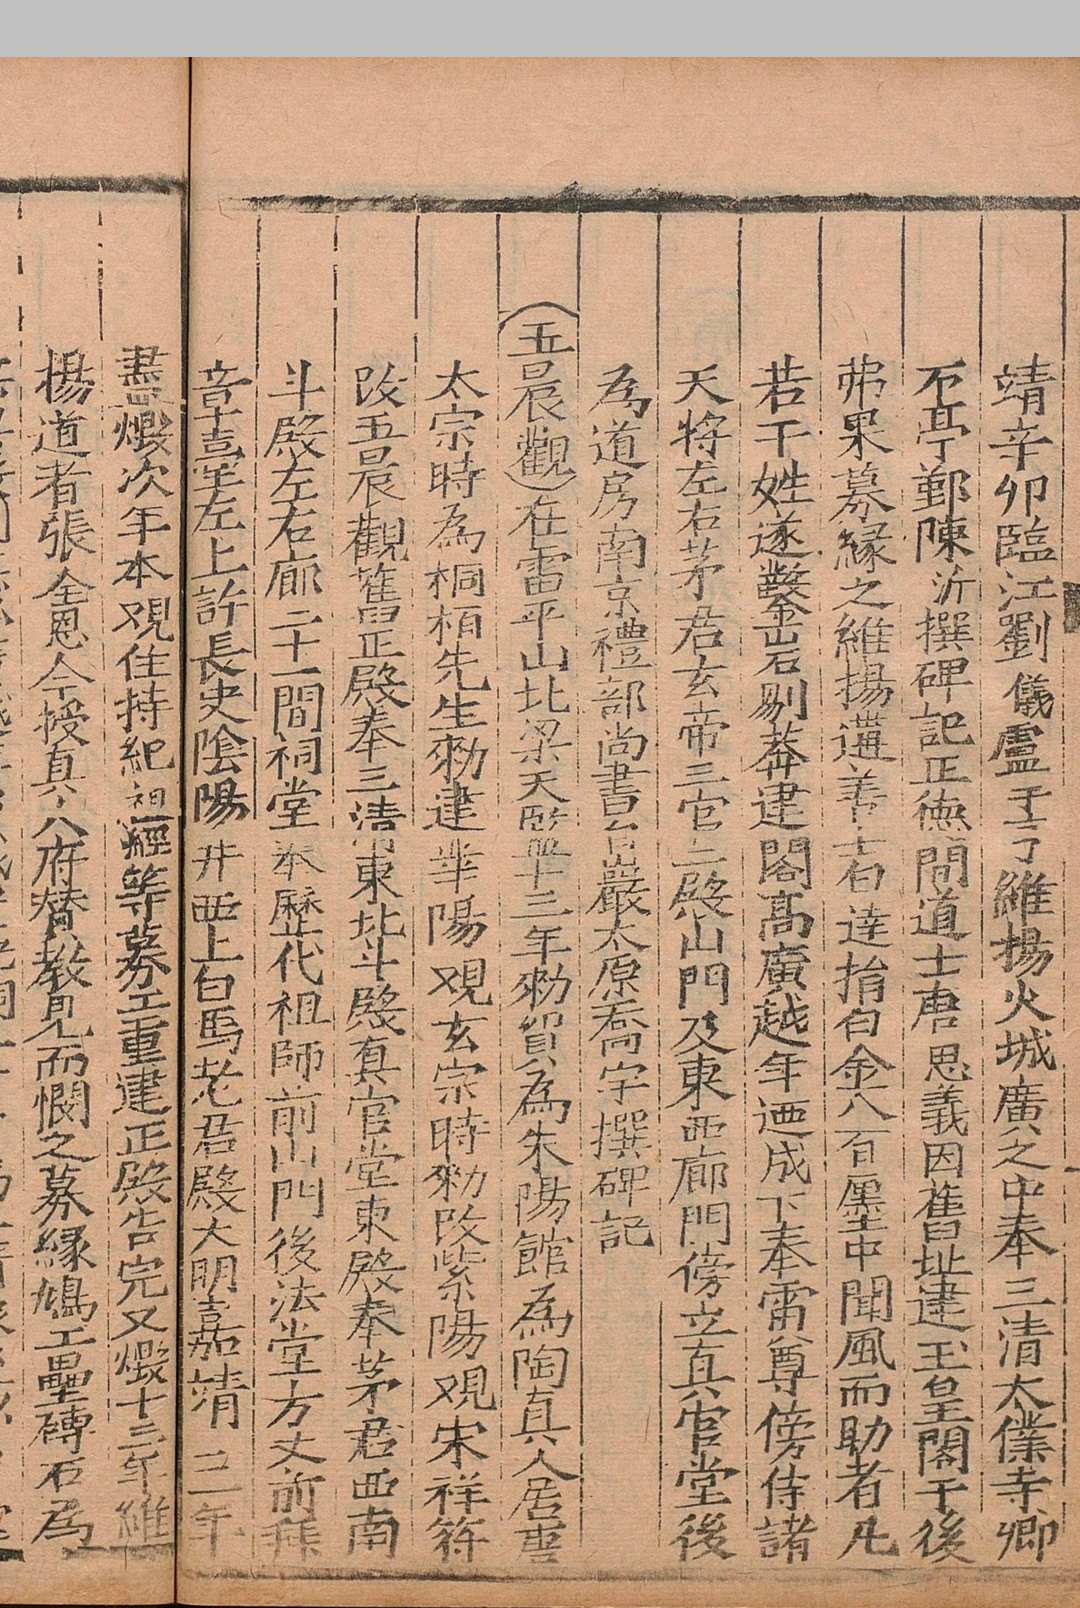 靖辛卯臨江劉儀盧于維揚火城廣之中奉三清太僕寺卿
石亭鄞陳沂撰碑記正德間道士唐思義因舊址建玉皇閣于後
弗果募緣之維揚遘善士白達捐白金八百厘士中聞風而助者凡
若干姓遂鑿嵒石剔莽建閣高廣越年迺成下奉雷尊傍侍諸
天將左右茅君玄帝三官二殿山門及東西廊門傍立真官堂後
為道房南京禮部尚書白巖太原喬宇撰碑記
五晨觀在雷平山北梁天監十三年勑貿為朱陽館為陶真人居唐
太宗時為桐栢先生勑建華陽观玄宗時勑改紫陽观宋祥符
改五晨觀舊正殿奉三清東北斗殿真官堂東殿奉茅君西南
斗殿左右廊二十一間祠堂奉歷代祖師前山門後法堂方丈前拜
章壹室左上許長史陰陽井西上白馬老君殿大明嘉靖三年
盡燬次年本观住持紀祖經等募工重建正殿告完又燬十三年維
揚道者張全恩今授真人府賛教見而憫之募緣鳩工壘磚石為